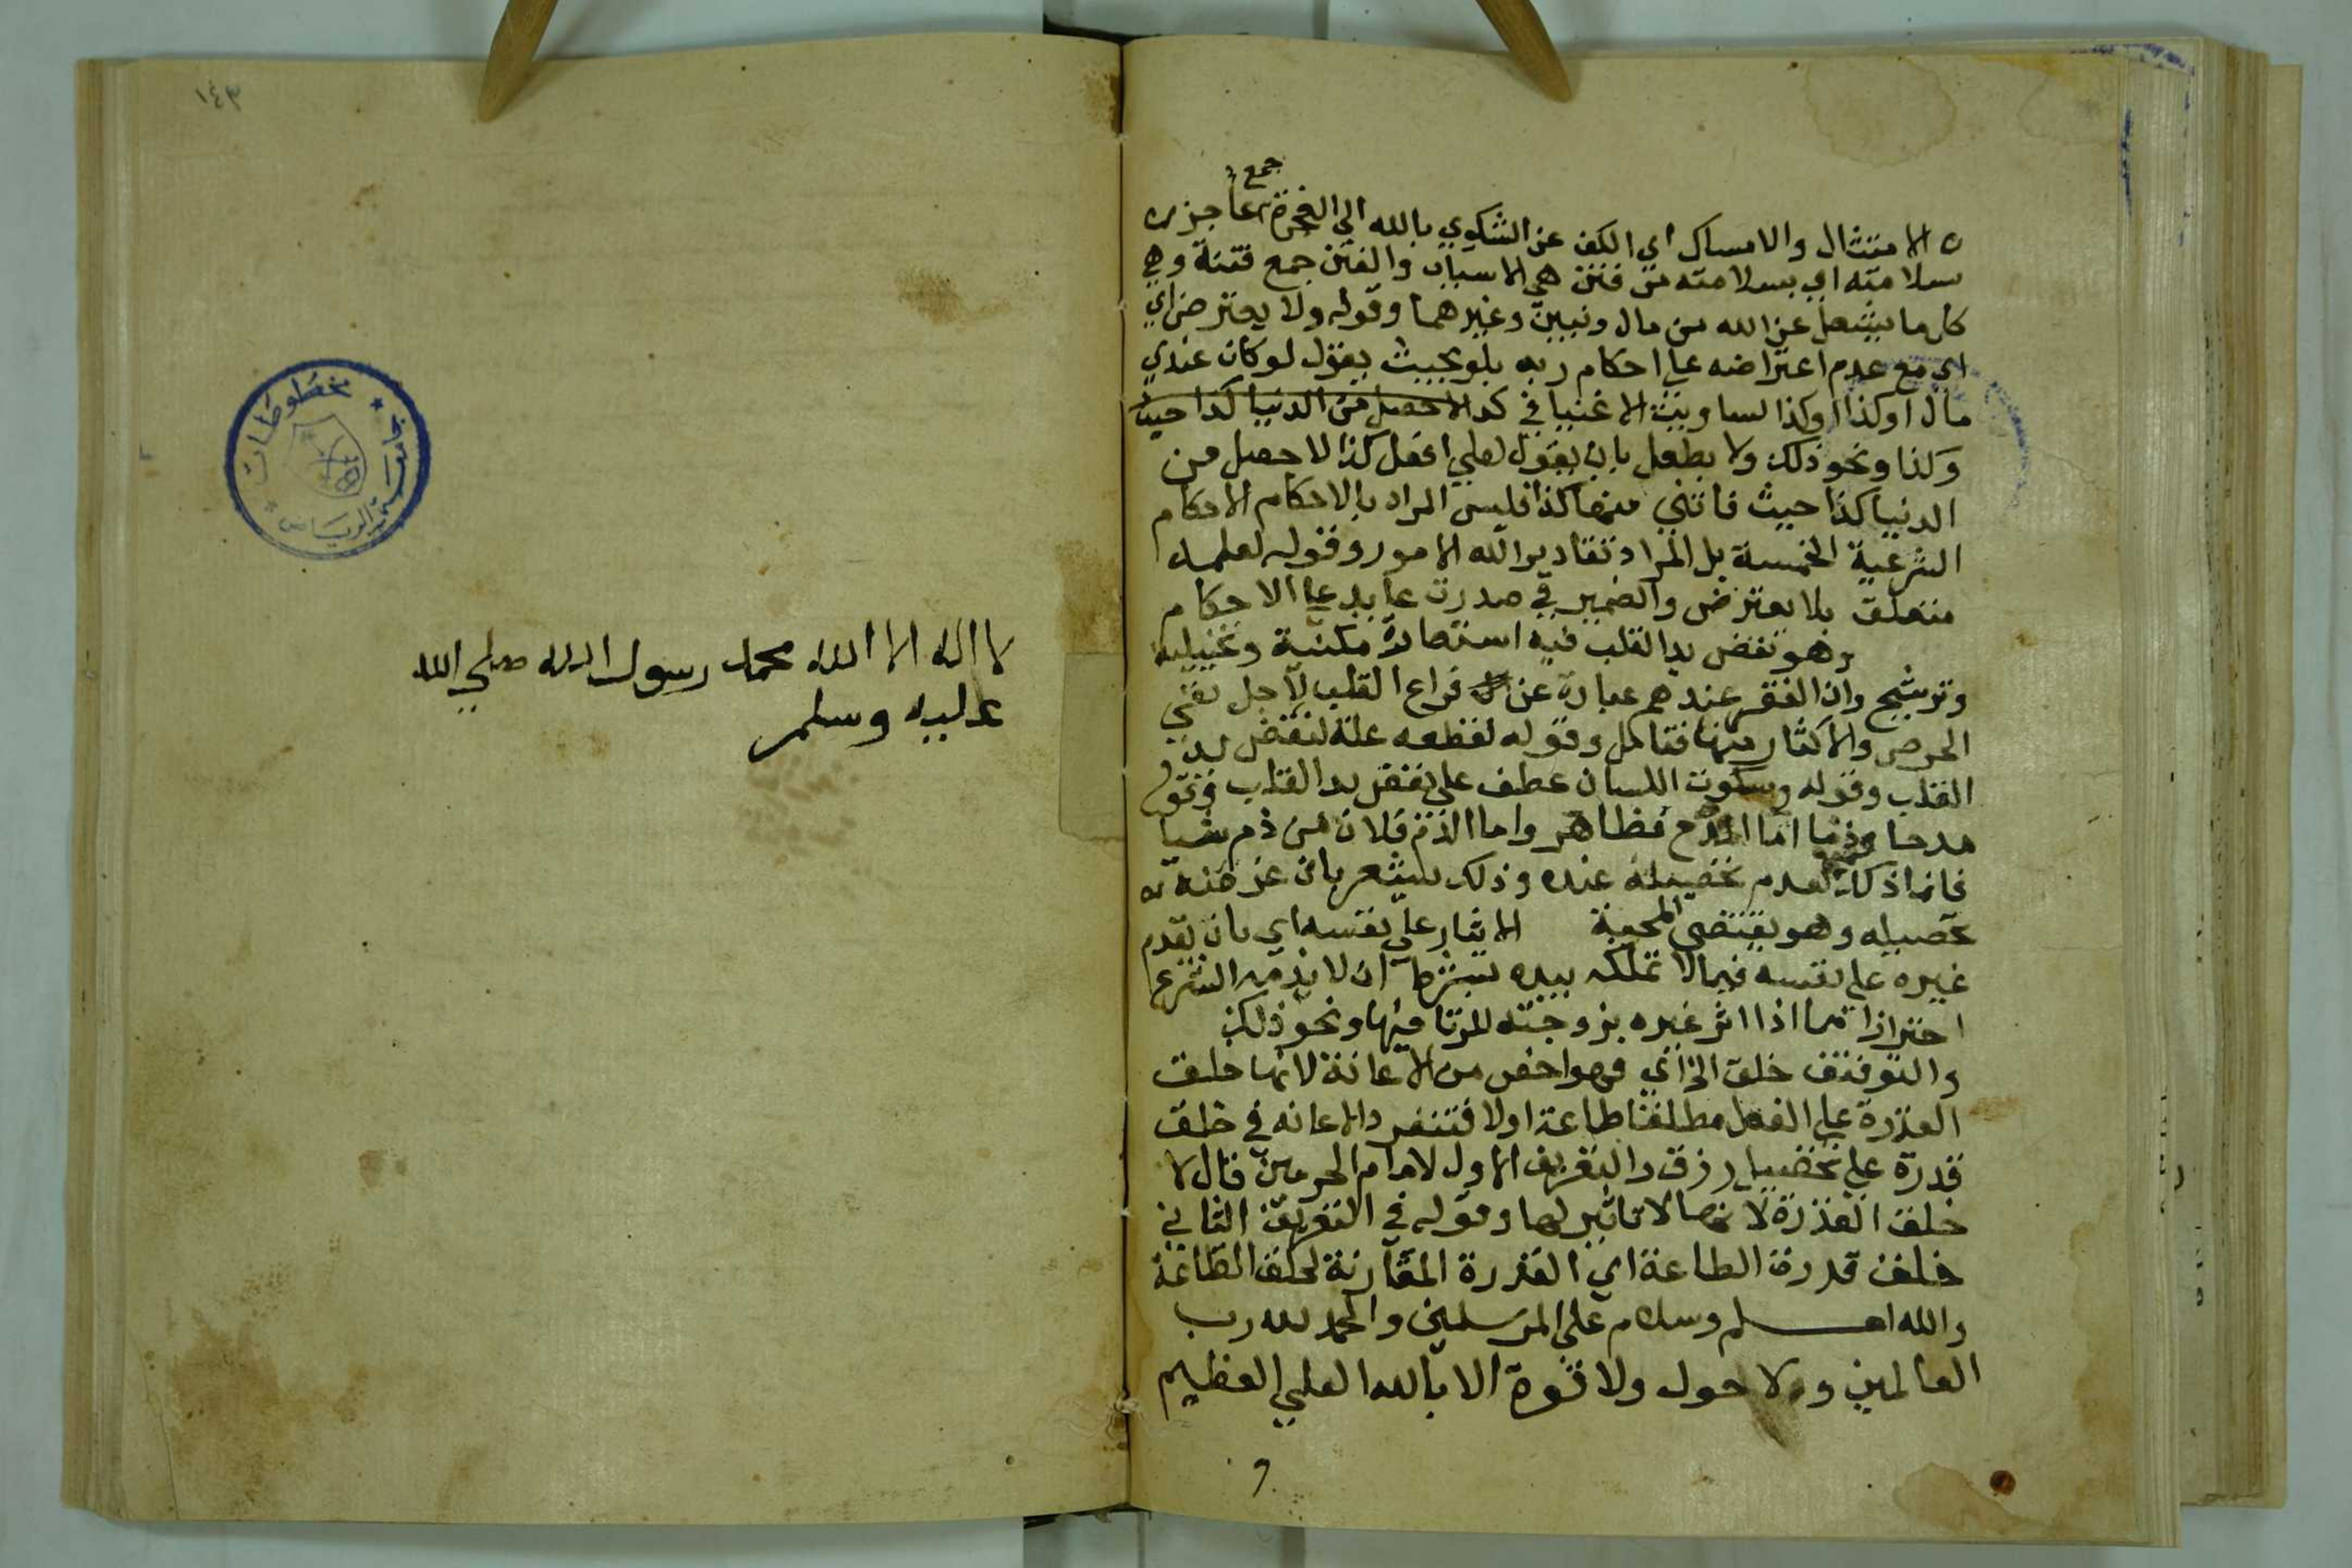 ه الامتثال والامساك اي الكف عن الشكوي بالله الي العجزة جمع عاجز
سلامته اي بسلامته من فتن هي الاسباب والفتن جمع فتنة وهي
كل ما يشغل عن الله من مال وبنين وغيرهما وقوله ولا يعترض اي
اي مع عدم اعتراضه علي احكام ربه بلو بحيث يقول لو كان عندي
مال او كذا وكذا لساويت الاغنيا في كذا لاحصل من الدنيا كذا حيث
وكذا ونحو ذلك ولا بطعل بان يقول لعلي افعل كذا لاحصل من
الدنيا كذا حيث فاتني منها كذا فليس المراد بالاحكام الاحكام
الشرعية الخمسة بل المراد تقادير الله الامور وقوله لعلمه
متعلق بلا يعترض والضمير في صدرت عايد علي الاحكام
وهو نفض يد القلب فيه استعارة مكنية وتخييلية
وترشيح وان الفقر عندهم عبارة عن فراغ القلب لاجل نفي
الحرص والاكثار منها فتامل وقوله لقطعه علة لنفض يد
القلب وقوله وسكوت اللسان عطف علي نفض يد القلب وقوله
مدحا وذما اما المدح فظاهر واما الذم فلان من ذم شيا
فانما ذلك لعدم تحصيله عنده وذلك يشعر بان غرضه
تحصيله وهو يقتضي المحبة الايثار علي نفسه اي بان يقدم
غيره علي نفسه فيما لا تملكه بيده بشرط ان لا يذمه الشرع
احترازا مما اذا اثر غيره بزوجته للزنا فيها ونحو ذلك
والتوفيق خلق الخ اي فهو اخص من الاعانة لانها خلق
القدرة علي الفعل مطلقا طاعة اولا فتنفرد الاعانه في خلق
قدرة علي تحصيل رزق والتعريف الاول لامام الحرمين قال لا
خلق القدرة لانها لا تاثير لها وقوله في التعريف الثاني
خلق قدرة الطاعة اي القدرة المقارنة لخلق الطاعة
والله اعلم وسلام علي المرسلين والحمد لله رب
العالمين ولا حول ولا قوة الا بالله العلي العظيم
١٤٣
مخطوطات
الرياض
لا اله الا الله محمد رسول الله صلي الله
عليه وسلم